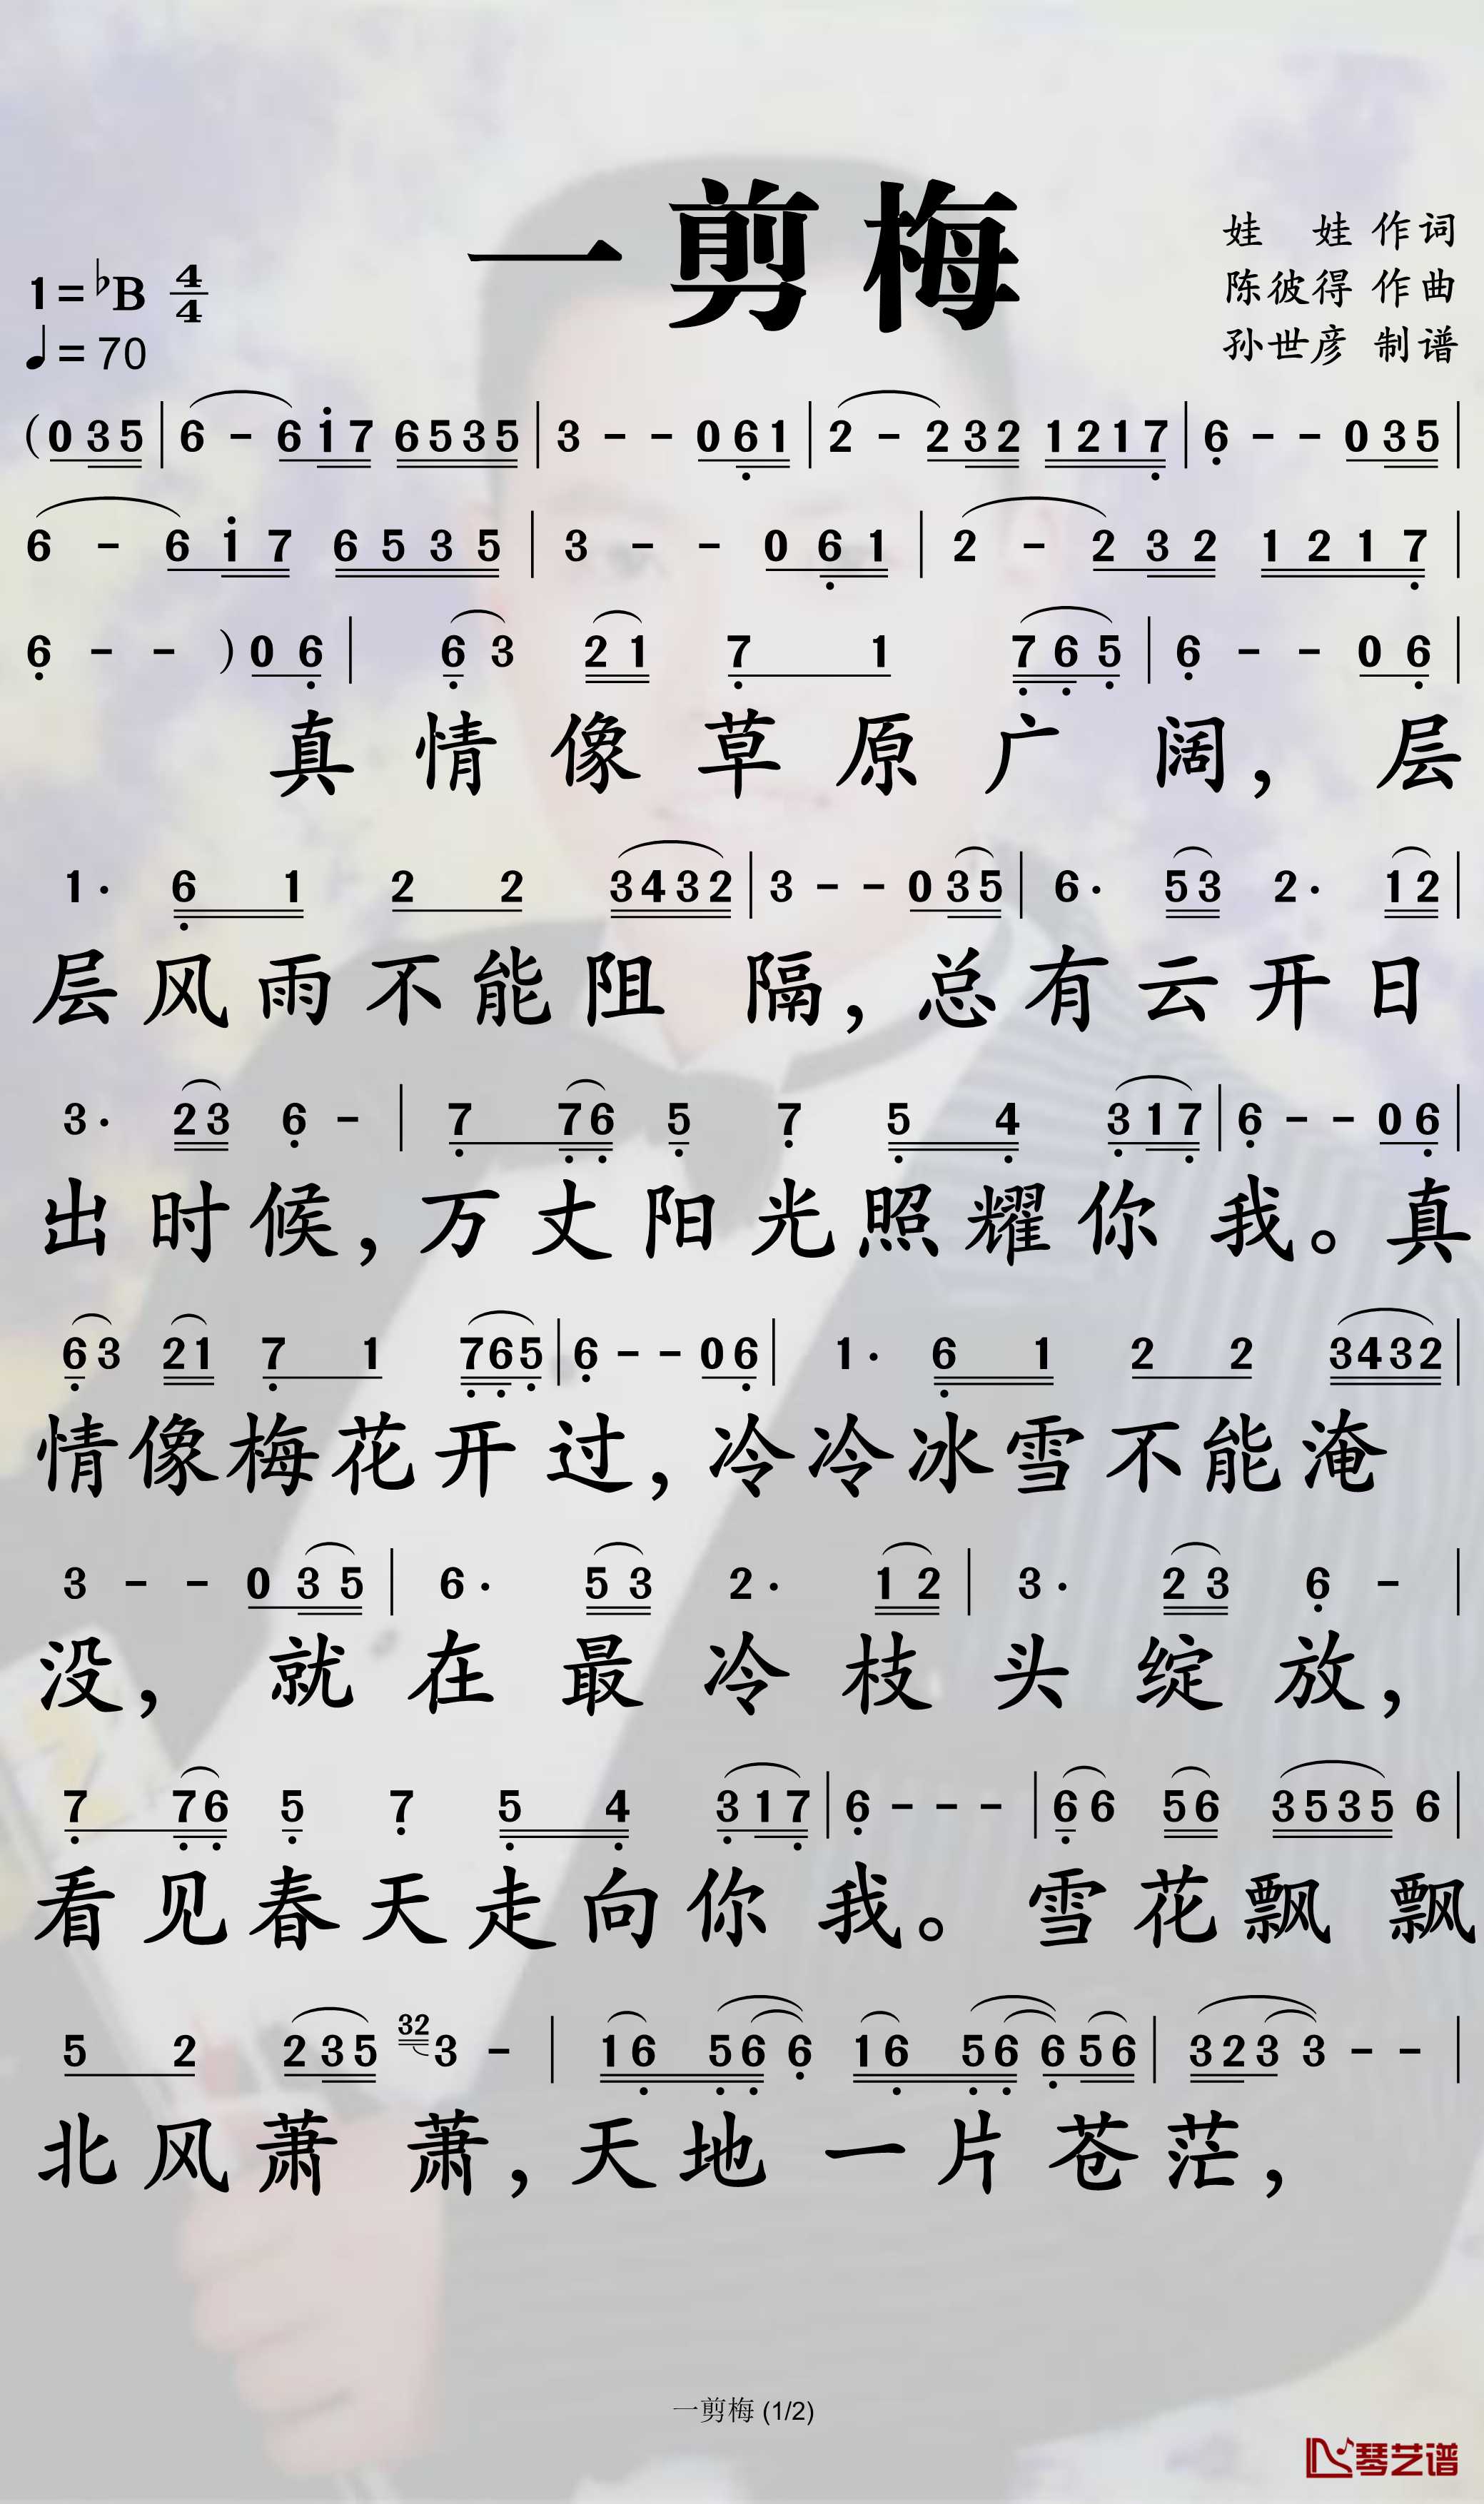 一剪梅
娃 娃 作词
陈彼得 作曲
孙世彦 制谱
1=♭B 4/4
♩=70
(0 35|6 - 6i7 6535|3 - - 061|2 - 232 1217|6 - - 035|
6 - 6i7 6535|3 - - 061|2 - 232 1217|
6 - - )06|63 21 7 1 765|6 - - 06|
真情像草原广阔，层
1· 6 1 2 2 3432|3 - - 035|6· 53 2· 12|
层风雨不能阻 隔，总有云开日
3· 23 6 -|7 76 5 7 5 4 317|6 - - 06|
出时候，万丈阳光照耀你 我。真
63 21 7 1 765|6 - - 06|1· 6 1 2 2 3432|
情像梅花开过，冷冷冰雪不能淹
3 - - 035|6· 53 2· 12|3· 23 6 -|
没，就在最冷枝头绽放，
7 76 5 7 5 4 317|6 - - -|66 56 3535 6|
看见春天走向你 我。雪花飘飘
5 2 235 323 -|16 56 6 16 56 656|323 3 - -|
北风萧 萧，天地一片苍茫，
一剪梅 (1/2)
琴艺谱